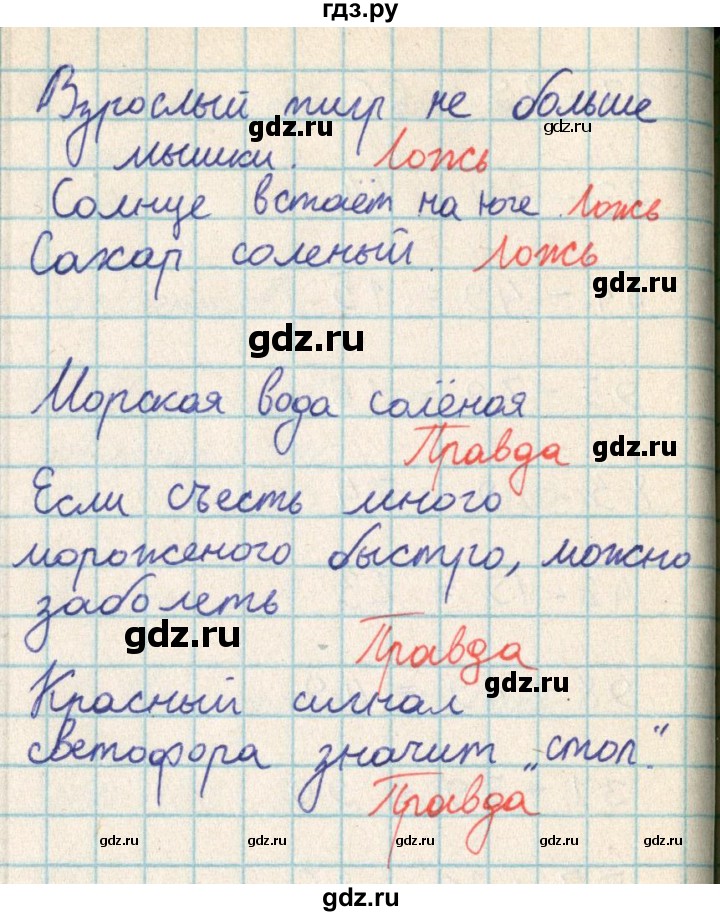 гдз.ру
Взрослый тигр не больше
gdz.ru gdz.ru
мышки. Ложь
Солнце встаёт на юге. Ложь
Сахар соленый. Ложь
gdz.ru
gdz.ru
Морская вода солёная
Правда gdz.ru
Если съесть много
мороженого быстро, можно
заболеть
gdz.ru Правда
Красный сигнал gdz.ru
светофора значит „стоп".
Правда
gdz.ru gdz.ru gdz.ru gdz.ru gdz.ru
gdz.ru